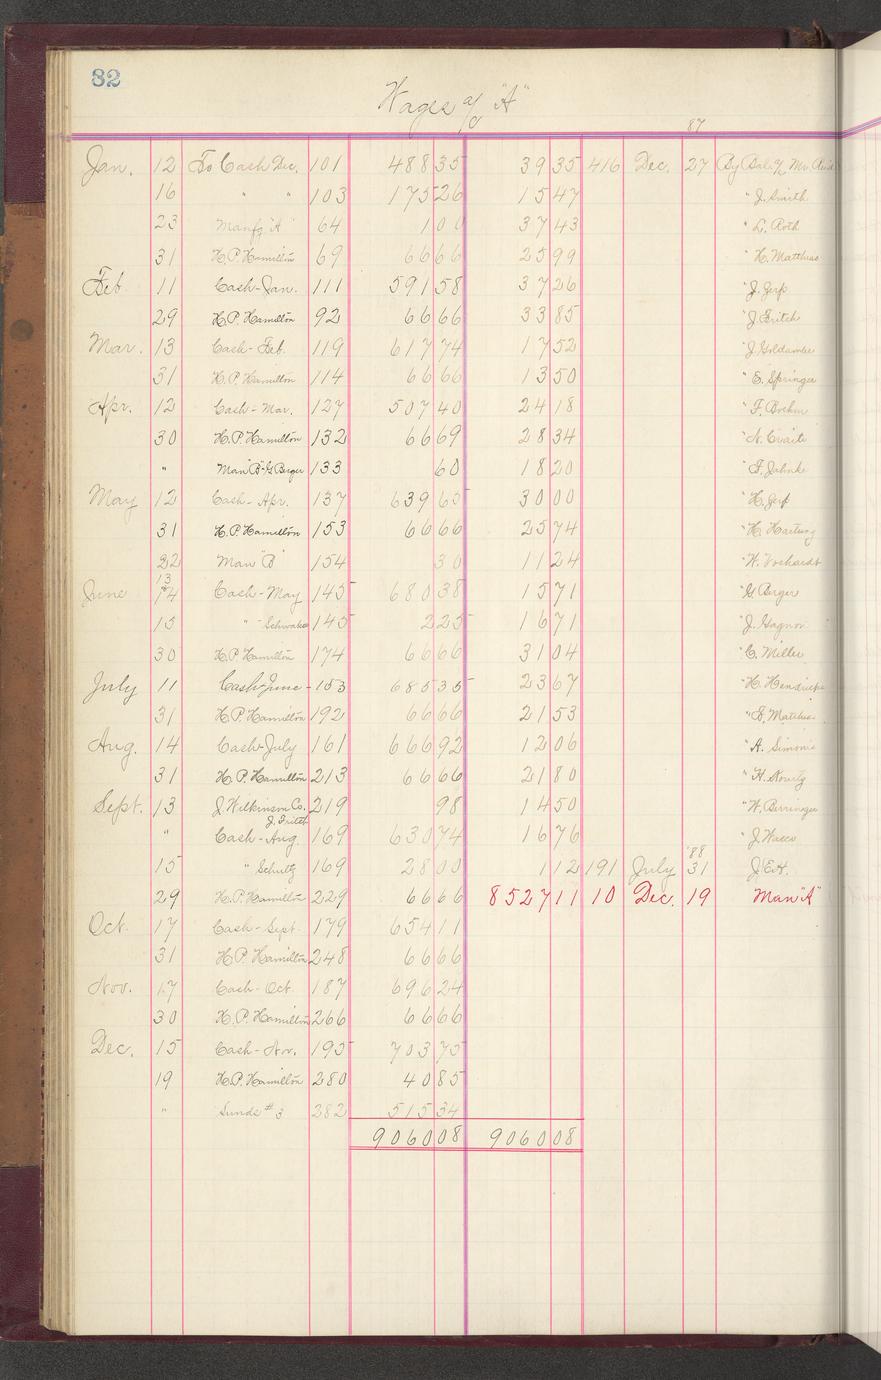 82
Wages a/c "A"
87
Jan. 12 To Cash Dec. 101 488 35 39 35 416 Dec. 27 By Bal. % Mr.
16 " " 103 175 26 15 47 " J. Smith
23 Manfg "A" 64 1 00 37 43 " L. Roth
31 H.P. Hamilton 69 66 66 25 99 " H. Matthias
Feb 11 Cash-Jan. 111 591 58 37 26 " J. Jerp
29 H.P. Hamilton 92 66 66 33 85 " J. Fritch
Mar. 13 Cash-Feb. 119 617 74 17 52 " J. Goldamer
31 H.P. Hamilton 114 66 66 13 50 " E. Springer
Apr. 12 Cash-Mar. 127 507 40 24 18 " F. Boehm
30 H.P. Hamilton 132 66 69 28 34 " N. Evaits
" Man "B"-G. Berger 133 60 18 20 " F. Jahnke
May 12 Cash-Apr. 137 639 65 30 00 " H. Jerp
31 H.P. Hamilton 153 66 66 25 74 " H. Hartung
22 Man "B" 154 30 11 24 " W. Vochardt
13
June 14 Cash-May 145 680 38 15 71 " G. Berger
15 " Schwake 145 2 25 16 71 " J. Gagnor
30 H.P. Hamilton 174 66 66 31 04 " C. Miller
July 11 Cash-June-153 685 35 23 67 " H. Hendricks
31 H.P. Hamilton 192 66 66 21 53 " E. Matthias
Aug. 14 Cash-July 161 666 92 12 06 " A. Simonis
31 H.P. Hamilton 213 66 66 21 80 " H.
Sept. 13 J. Wilkinson Co. 219 98 14 50 " W. Berringer
J. Fritch
" Cash-Aug. 169 630 74 16 76 " J. Wacco
'88
15 " Schultz 169 28 00 1 12 191 July 31 J.E.H.
29 H.P. Hamilton 229 66 66 8527 11 10 Dec. 19 Man "A"
Oct. 17 Cash-Sept. 179 654 11
31 H.P. Hamilton 248 66 66
Nov. 17 Cash-Oct. 187 696 24
30 H.P. Hamilton 266 66 66
Dec. 15 Cash-Nov. 195 703 75
19 H.P. Hamilton 280 40 85
" Sunds #3 282 515 34
9060 08 9060 08